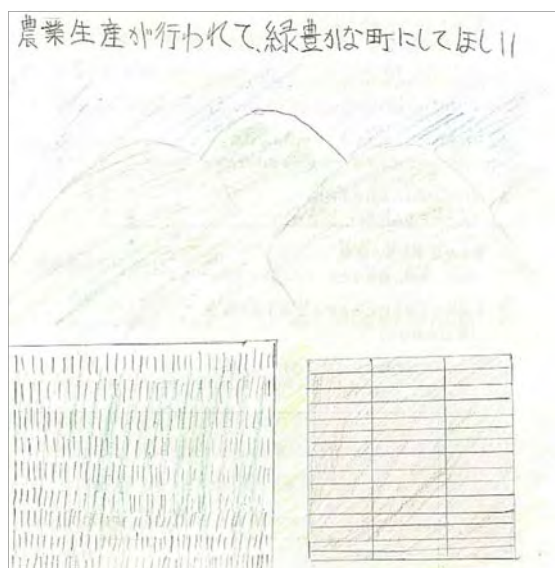 農業生産が行われて、緑豊かな町にしてほしい